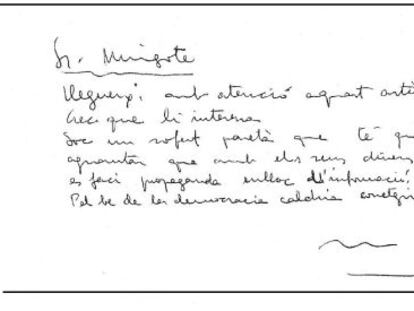 Sr. Mingote
Llegueixi amb atenció aquest artí
Crec que li interesa
Soc un sofert paretà que té que
aguantar que amb els seus diners
es faci propaganda enlloc d'informació.
Pel be de la democracia caldria